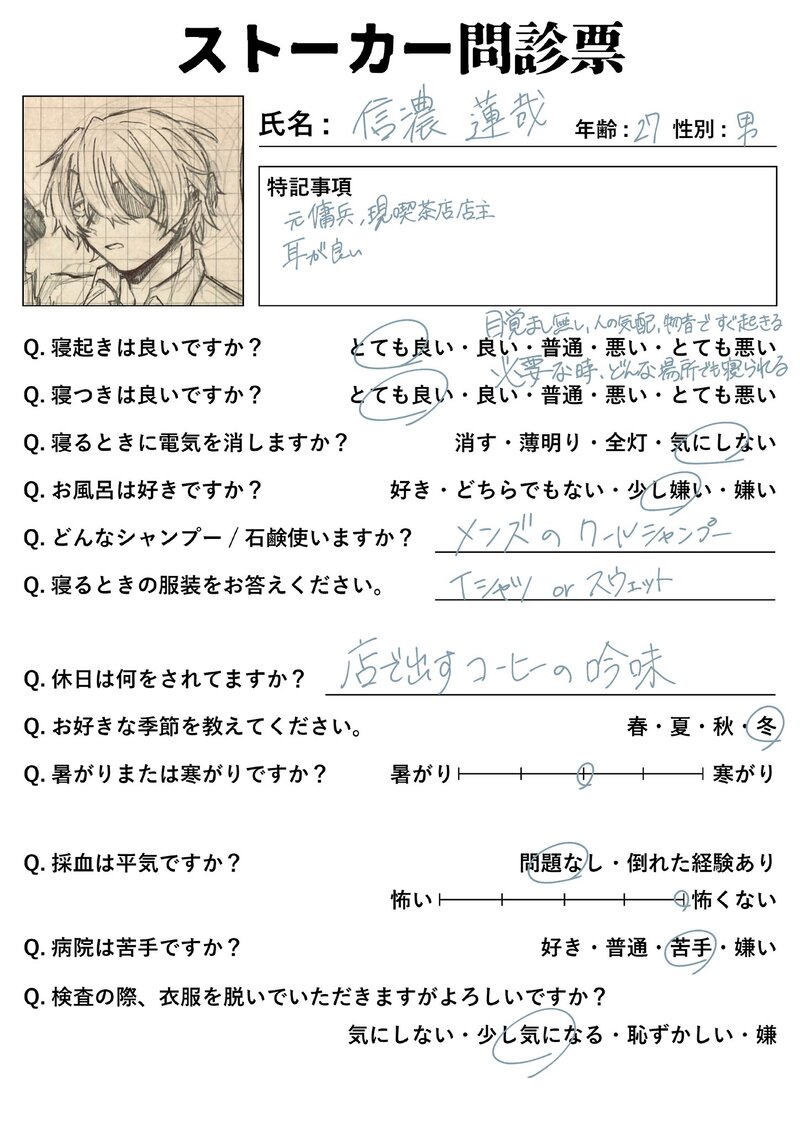 ストーカー問診票
氏名： 信濃 蓮哉 年齢：27 性別：男
特記事項
元傭兵、現喫茶店店主
耳が良い
目覚まし無し、人の気配、物音ですぐ起きる
Q. 寝起きは良いですか？ とても良い・良い・普通・悪い・とても悪い
必要な時、どんな場所でも寝られる
Q. 寝つきは良いですか？ とても良い・良い・普通・悪い・とても悪い
Q. 寝るときに電気を消しますか？ 消す・薄明り・全灯・気にしない
Q. お風呂は好きですか？ 好き・どちらでもない・少し嫌い・嫌い
Q. どんなシャンプー / 石鹸使いますか？ メンズのクールシャンプー
Q. 寝るときの服装をお答えください。 Tシャツ or スウェット
Q. 休日は何をされてますか？ 店で出すコーヒーの吟味
Q. お好きな季節を教えてください。 春・夏・秋・冬
Q. 暑がりまたは寒がりですか？ 暑がり 寒がり
Q. 採血は平気ですか？ 問題なし・倒れた経験あり
怖い 怖くない
Q. 病院は苦手ですか？ 好き・普通・苦手・嫌い
Q. 検査の際、衣服を脱いでいただきますがよろしいですか？
気にしない・少し気になる・恥ずかしい・嫌